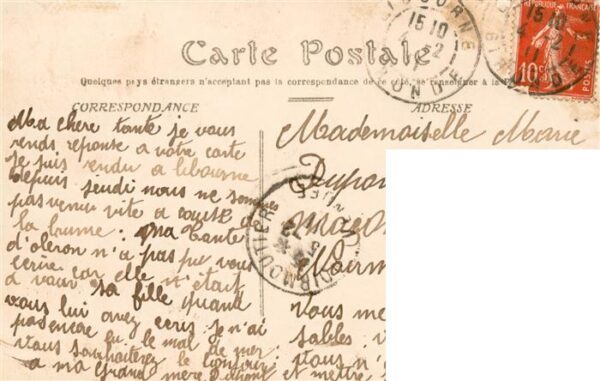 Carte Postale
Quelques pays étrangers n'acceptant pas la correspondance de ce côté, se renseigner à la P
CORRESPONDANCE
ADRESSE
Ma chere tante je vous
rends reponse a votre carte
je suis rendu a libourne
depuis jeudi nous ne sommes
pas venu vite a cause de
la brume; Ma tante
d'oleron n'a pas pu vous
ecrire car elle n'était
a vaux sa fille quand
vous lui avez ecris je n'ai
pas encore eu le mal de mer
vous souhaiterez le bonjour
a ma grand mere Dupont
Mademoiselle Marie
Dupon
Noirm
Vous me
sables
vous n'
et mettre
LIBOURNE
15 10
GIRONDE
15 10
NOIRMOUTIER
RÉPUBLIQUE FRANÇAISE
10
POSTES